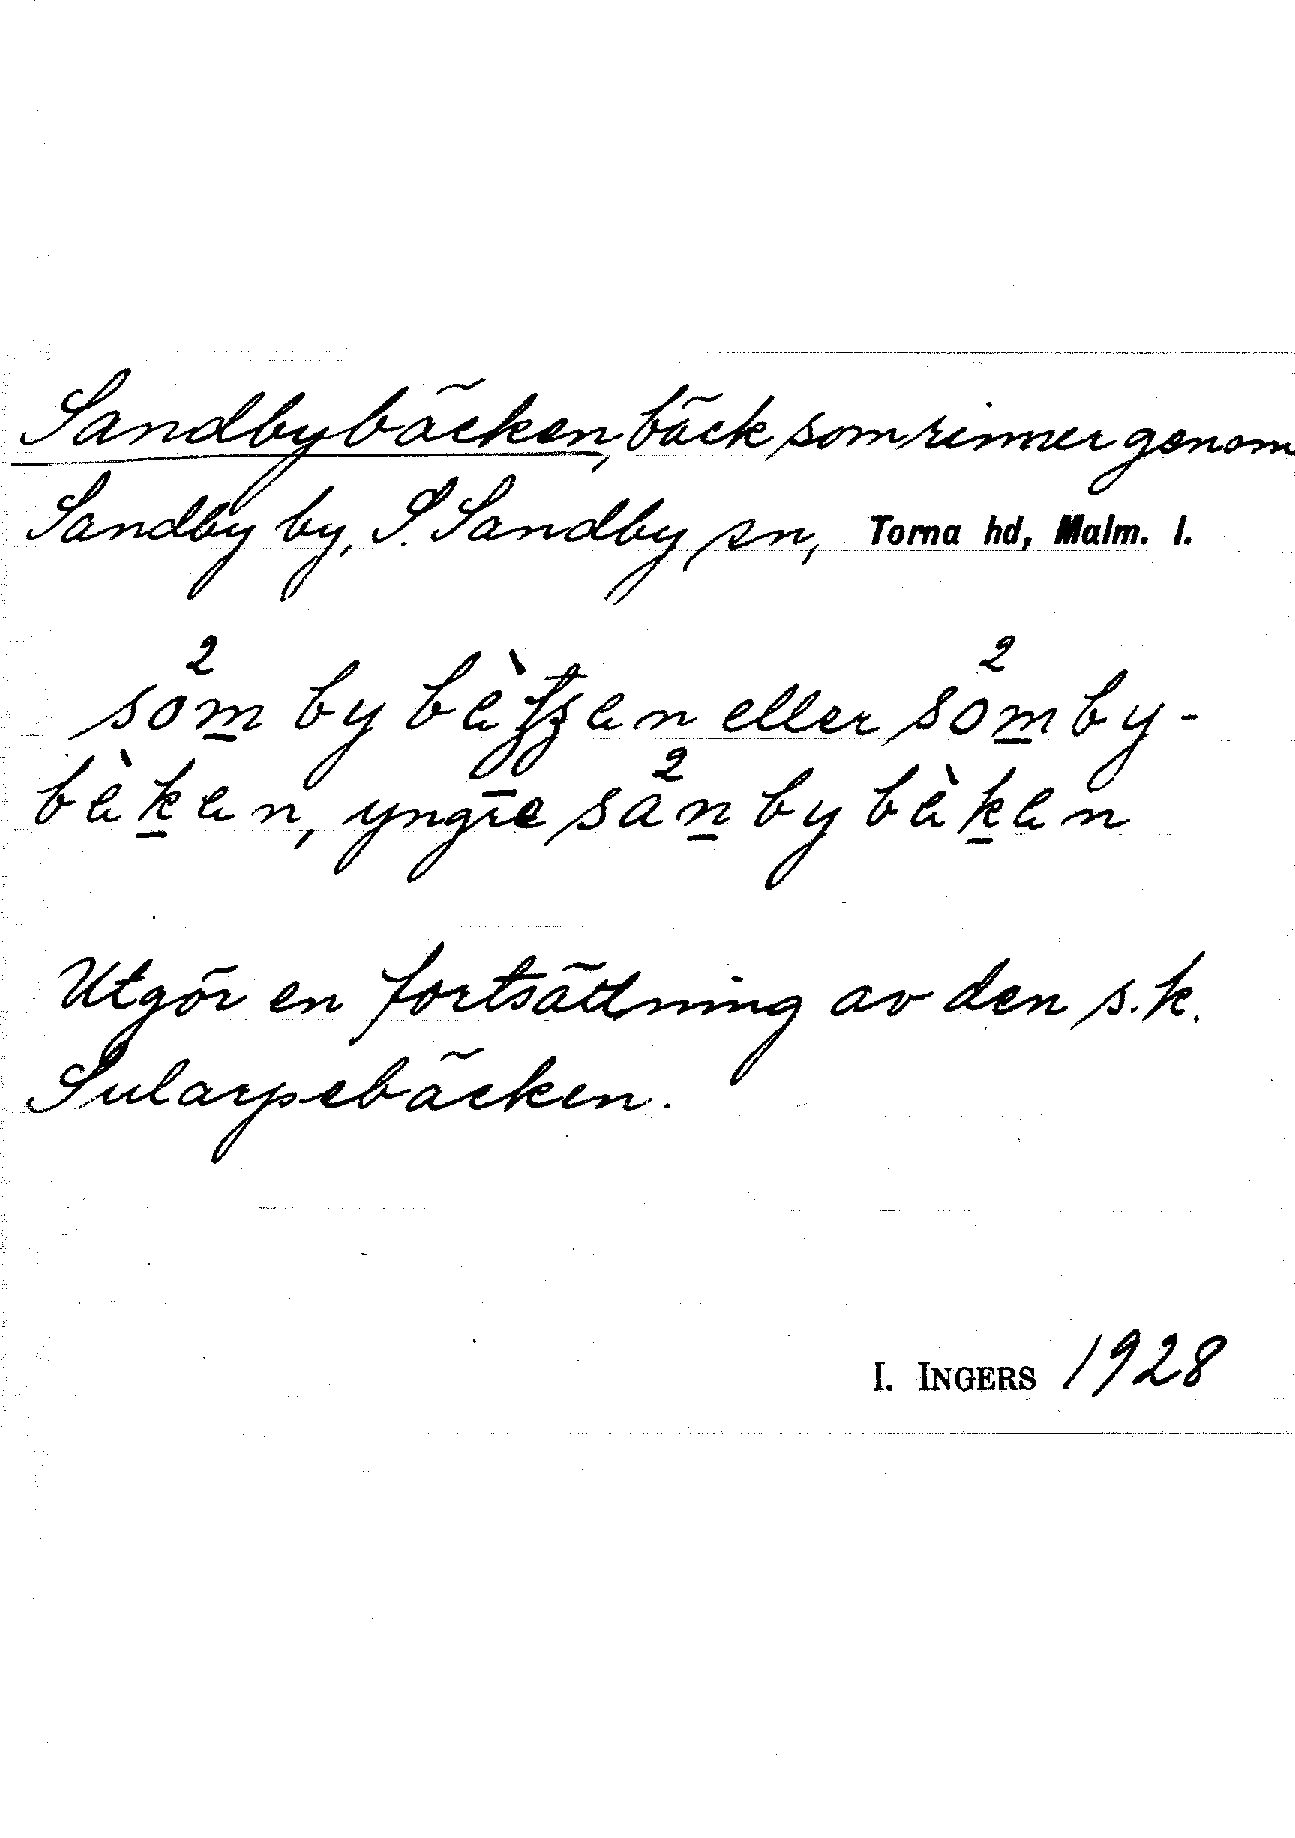 Sandbybäcken, bäck som rinner genom
Sandby by, S. Sandby sn, Torna hd, Malm. l.
så²m by bètʒen eller så²m by-
bèken, yngre sa²n by bèken
Utgör en fortsättning av den s.k.
Sularpebäcken.
I. INGERS 1928